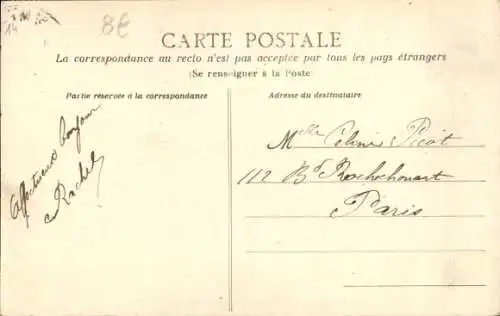 14
8€
CARTE POSTALE
La correspondance au recto n'est pas acceptée par tous les pays étrangers
(Se renseigner à la Poste)
Partie réservée à la correspondance
Adresse du destinataire
Affectueux bonjour
Rachel
Melle Celine Picot
112 Bd Rochechouart
Paris